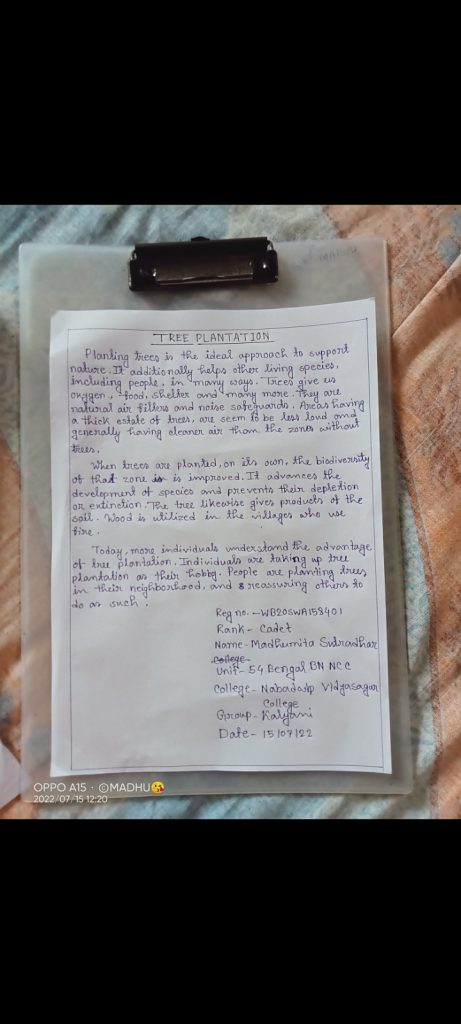 TREE PLANTATION
Planting trees is the ideal approach to support
nature. It additionally helps other living species,
including people, in many ways. Trees give us
oxygen, food, shelter and many more. They are
natural air filters and noise safeguards. Areas having
a thick estate of trees, are seem to be less loud and
generally having cleaner air than the zones without
trees.
When trees are planted, on its own, the biodiversity
of that zone is is improved. It advances the
development of species and prevents their depletion
or extinction. The tree likewise gives products of the
soil. Wood is utilized in the villages who use
fire.
Today, more individuals understand the advantage
of tree plantation. Individuals are taking up tree
plantation as their hobby. People are planting trees
in their neighborhood, and reassuring others to
do as such.
Reg no. - WB20SWA158401
Rank - Cadet
Name - Madhumita Sutradhar
College -
Unit - 54 Bengal BN NCC
College - Nabadwip Vidyasagar
College
Group - Kalyani
Date - 15/07/22
OPPO A15 · ©MADHU😘
2022/07/15 12:20